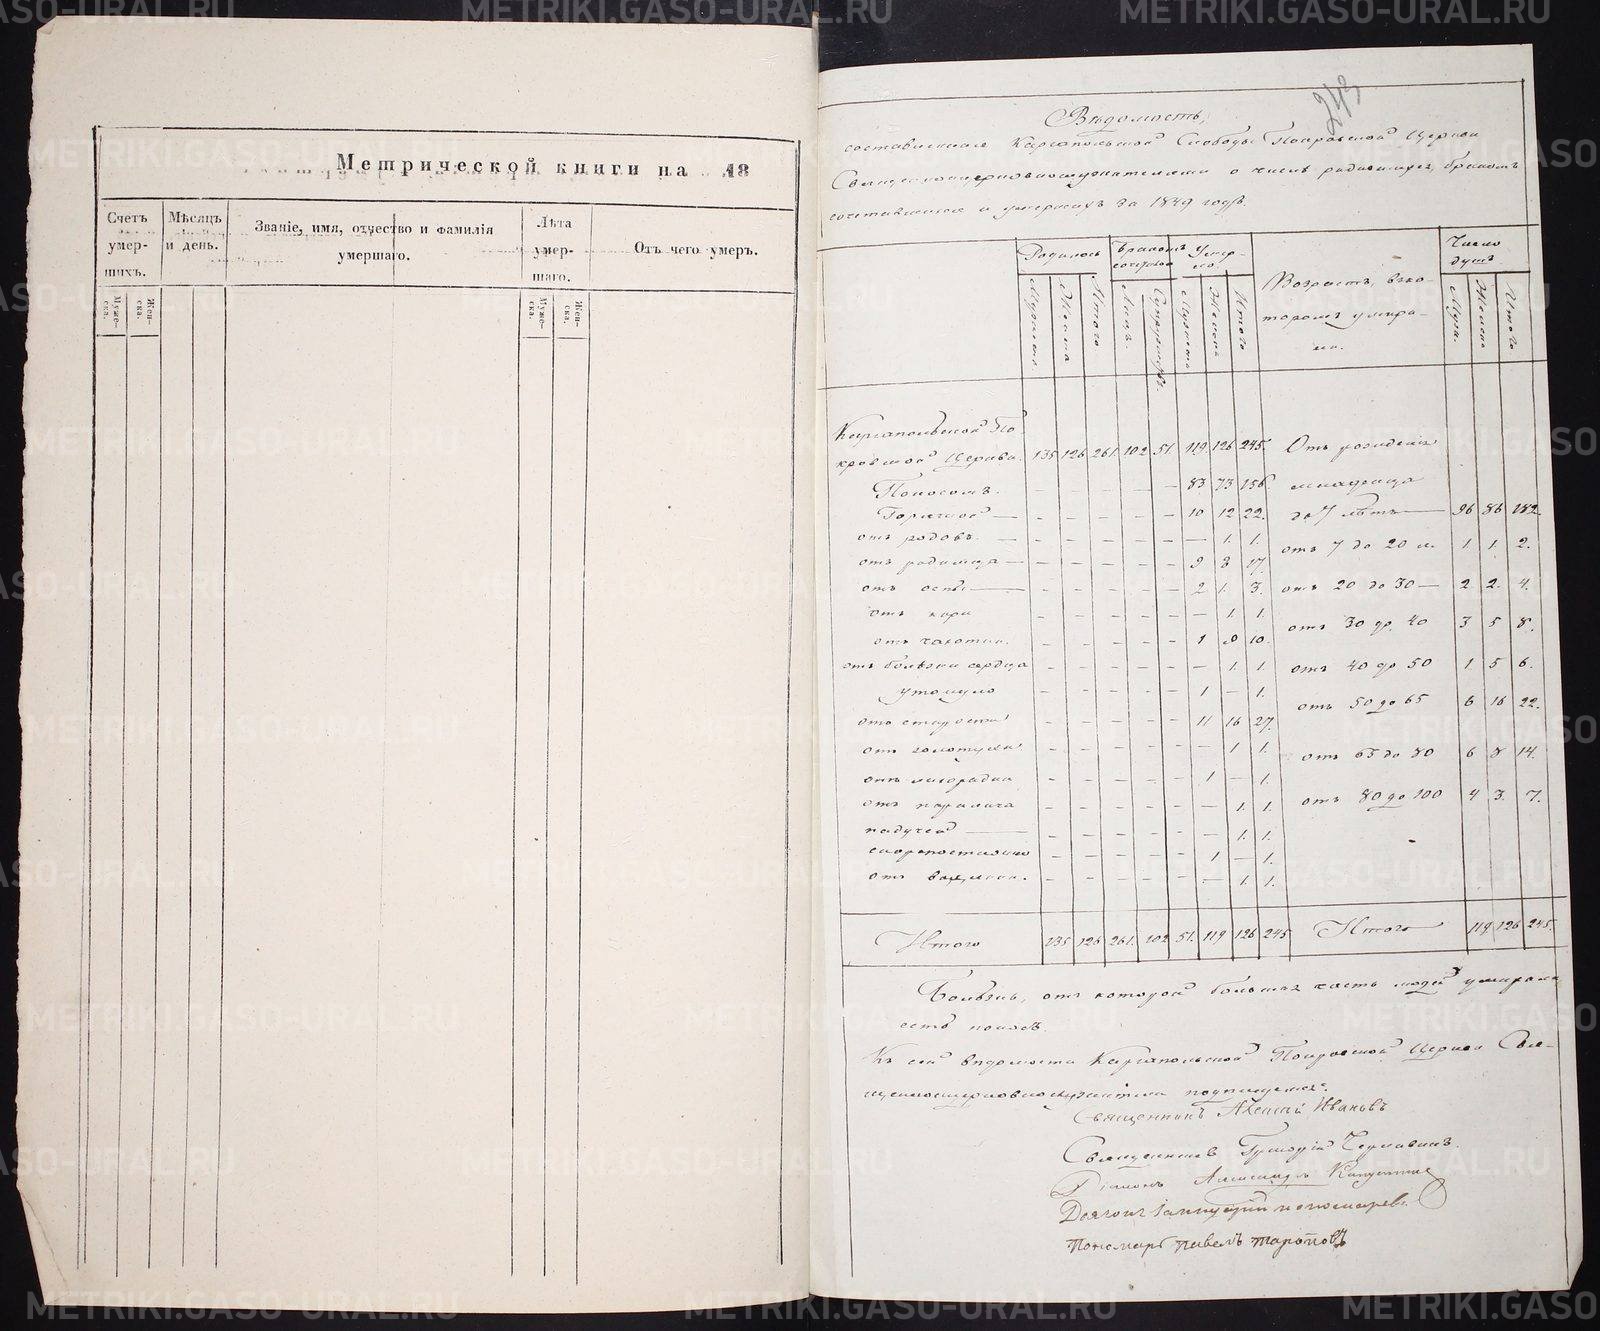 Метрической книги на 18
Счетъ умершихъ.
Мѣсяцъ и день.
Званіе, имя, отчество и фамилія умершаго.
Лѣта умершаго.
Отъ чего умеръ.
Мужеска.
Женска.
Мужеска.
Женска.
243
Вѣдомость,
составленная Каргапольской Слободы Покровской Церкви
Священноцерковнослужителями о числѣ родившихся, бракомъ
сочетавшихся и умершихъ за 1849 годъ.
Родилось
Бракомъ
Умерло.
Возрастъ, въ котором умирали.
Число душъ.
Итого
Итого
Муж.
Итого
Каргапольской По-
кровской Церкви. 135 126 261. 102 51. 119. 126 245. Отъ рожденія
Поносомъ. – – – – – 83 73 156. младенца
Горячкой – – – – – – 10 12 22. до 7 лѣтъ 96 86 182.
отъ родовъ. – – – – – – – 1. 1. отъ 7 до 20 л. 1. 1. 2.
отъ родимца – – – – – 9 8 17.
отъ оспы – – – – – 2 1. 3. отъ 20 до 30 – 2 2. 4.
отъ кори – – – – – – 1. 1. отъ 30 до 40 3 5 8.
отъ чахотки. – – – – – 1 9 10.
отъ болѣзни сердца – – – – – – 1. 1. отъ 40 до 50 1 5 6.
утонуло – – – – – 1 – 1.
отъ старости – – – – – 11 16 27. отъ 50 до 65 6 16 22.
отъ золотухи – – – – – – 1 1.
отъ лихорадки – – – – – 1 – 1. отъ 65 до 80 6 8 14.
отъ паралича – – – – – – 1. 1. отъ 80 до 100 4 3. 7.
падучей – – – – – – 1. 1.
скоропостижно – – – – – 1 – 1.
отъ – – – – – – 1. 1.
Итого 135 126 261. 102 51. 119 126 245 Итого 119. 126 245.
Болѣзнь, отъ которой большая часть людей умирала
есть поносъ.
Къ сей вѣдомости Каргапольской Покровской Церкви Свя-
щенноцерковнослужители подписуемся:
Священникъ Алексѣй Ивановъ
Священникъ Григорій
Діаконъ Александръ
Дьячокъ Пономаревъ.
Пономарь Павелъ Топорковъ
METRIKI.GASO-URAL.RU